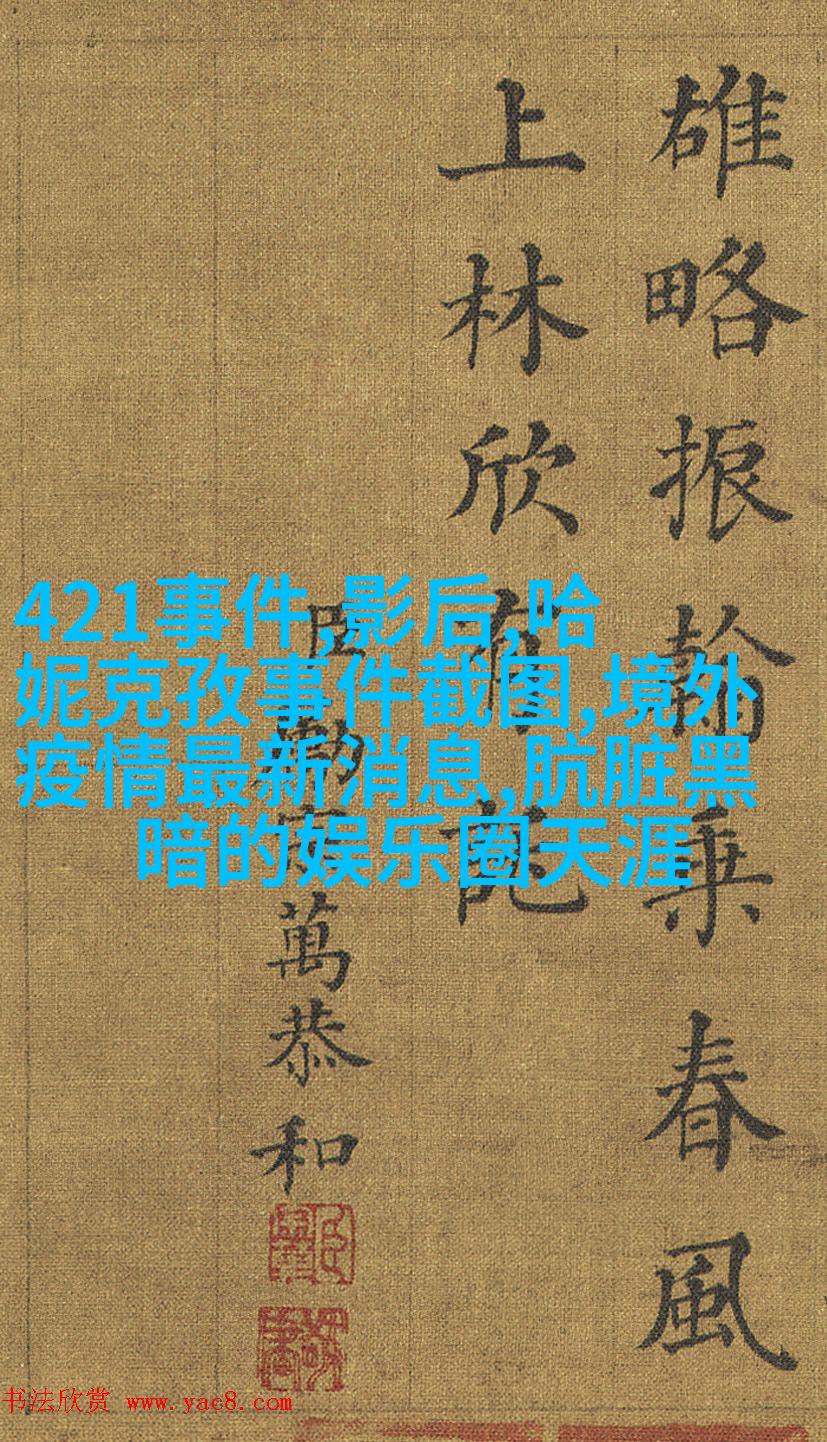 雄略振翰乘春風
上林欣有託
臣勵宗萬恭和
421事件,影后,哈
妮克孜事件截图,境外
疫情最新消息,肮脏黑
暗的娱乐圈天涯
书法欣赏 www.yac8.com